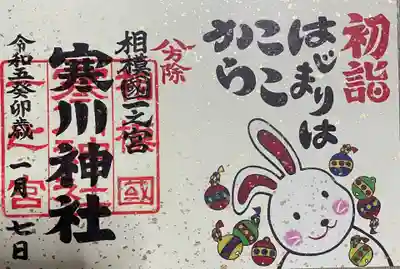 初詣
はじまりは
ここ
から
八方除
相模國一之宮
寒川神社
令和五癸卯歳 一月 七日